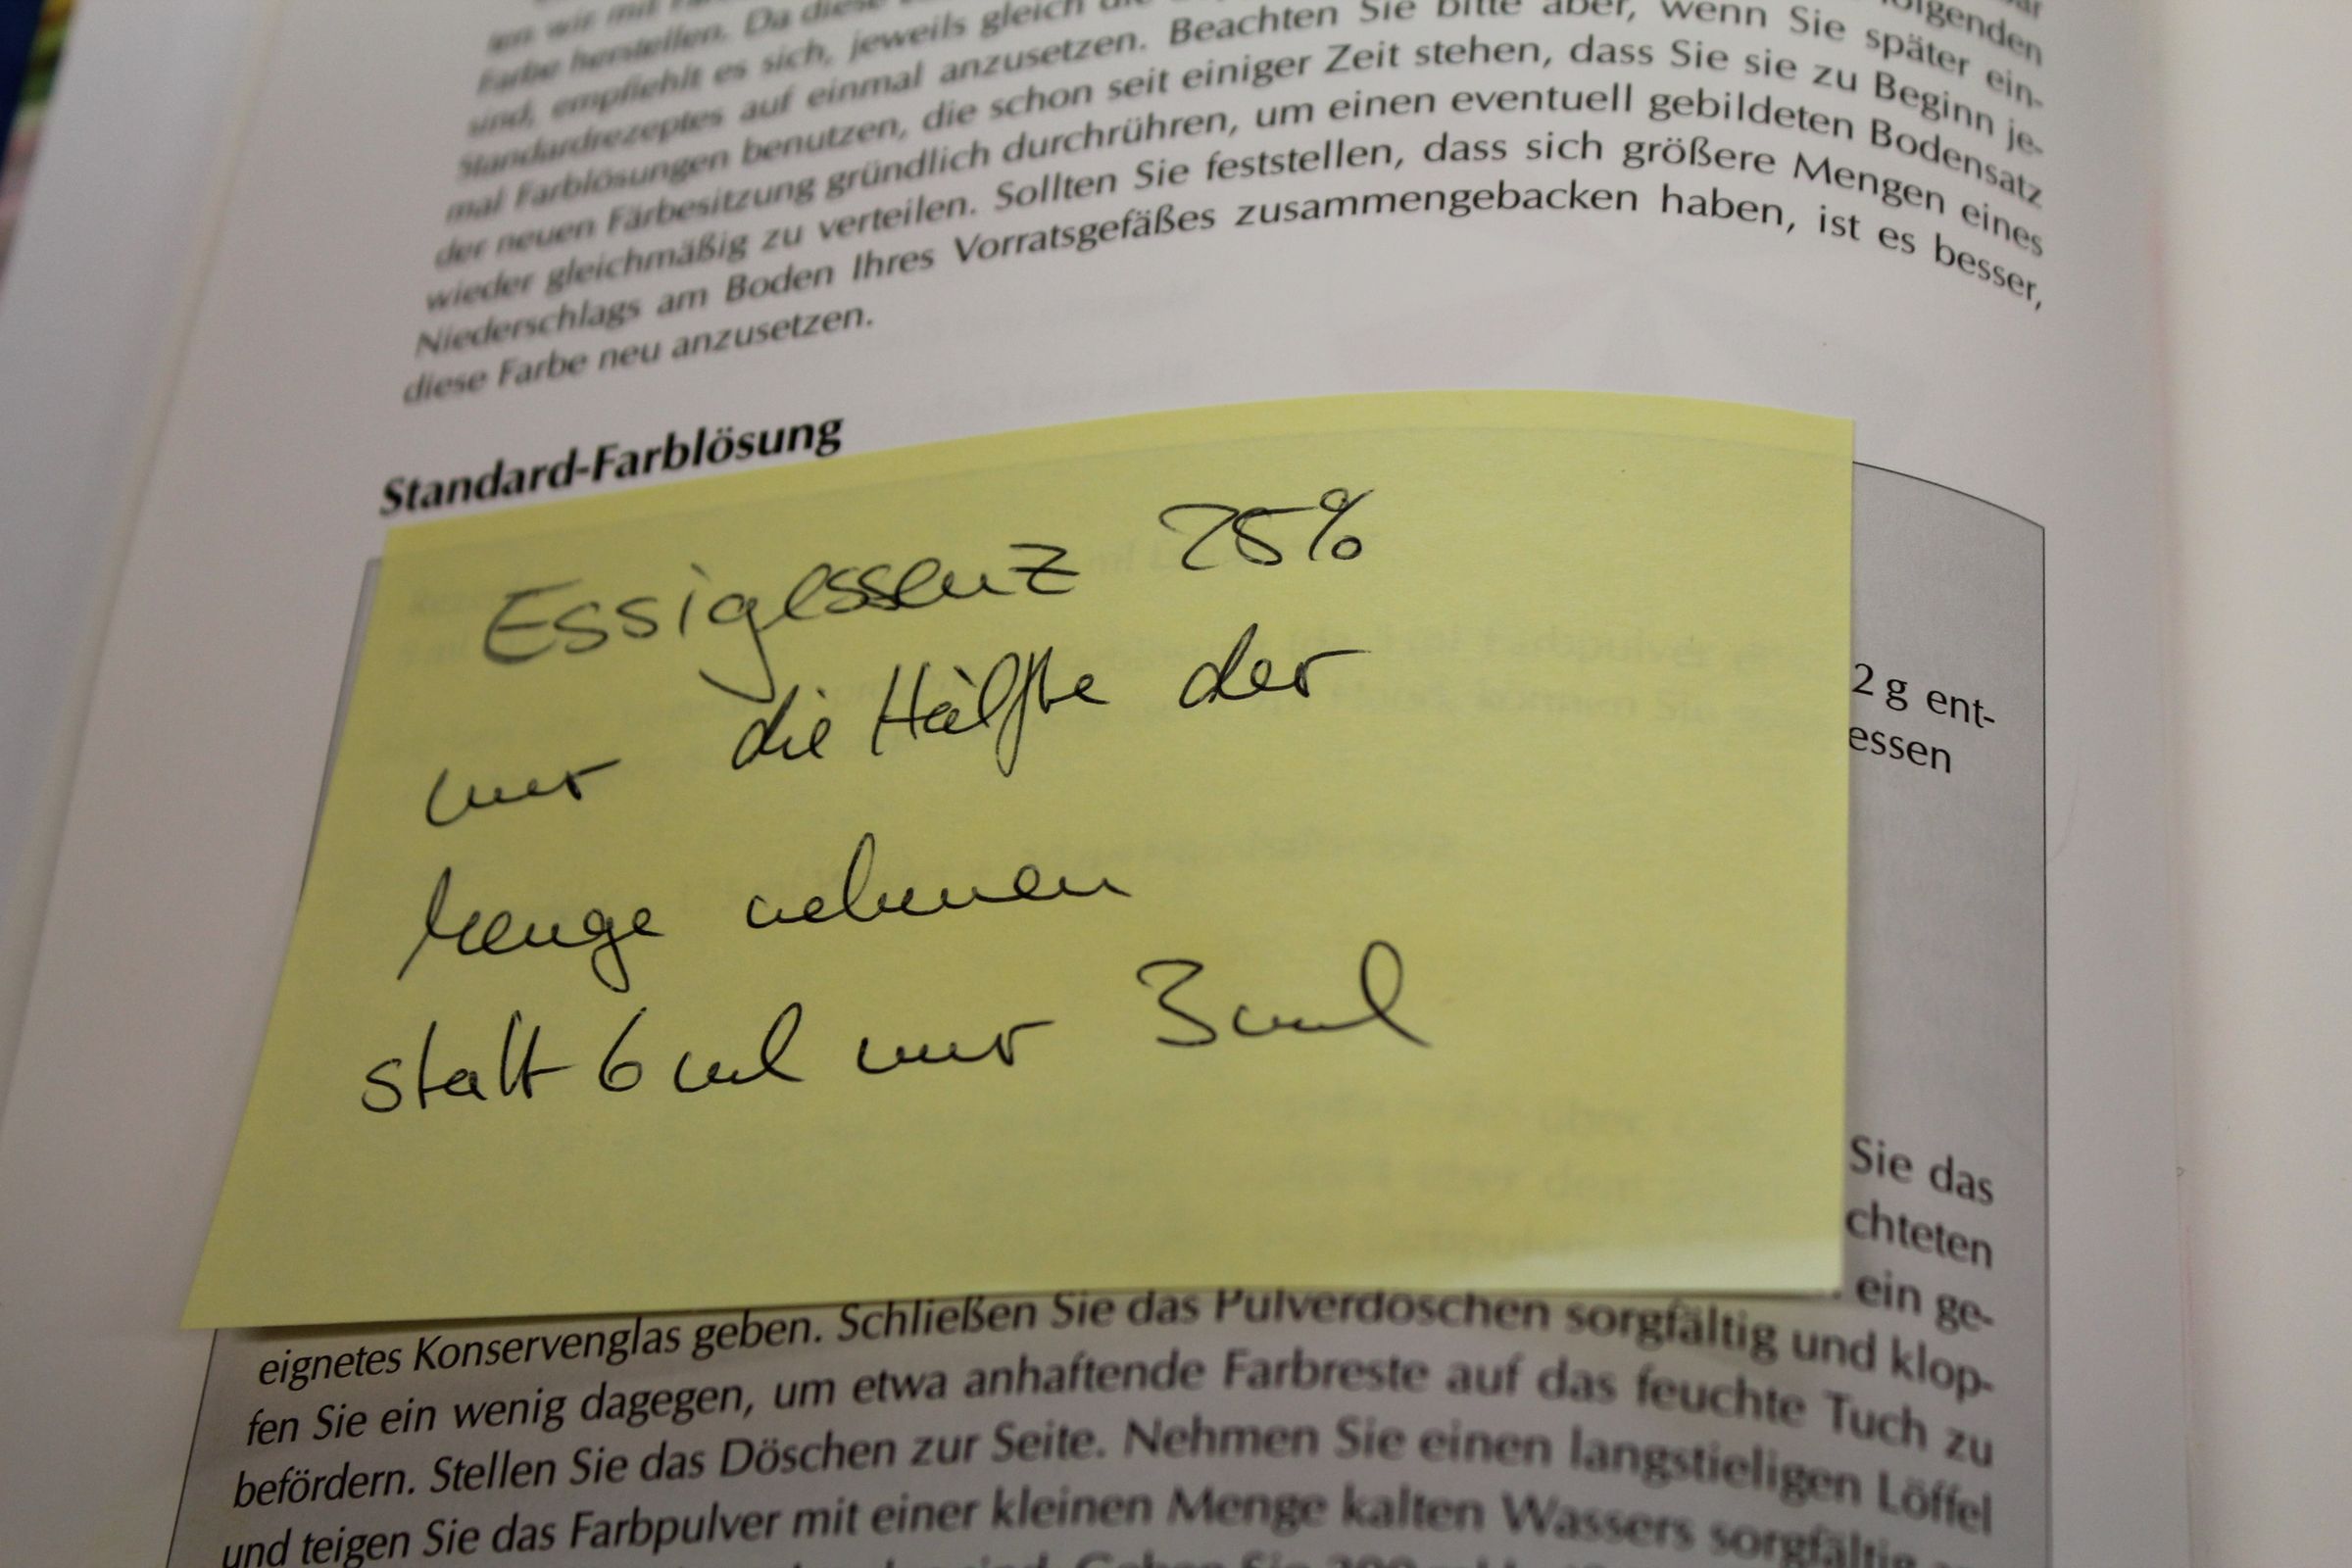 folgenden
Farbe herstellen. Da diese
sind, empfiehlt es sich, jeweils gleich die
Standardrezeptes auf einmal anzusetzen. Beachten Sie bitte aber, wenn Sie später ein-
mal Farblösungen benutzen, die schon seit einiger Zeit stehen, dass Sie sie zu Beginn je-
der neuen Färbesitzung gründlich durchrühren, um einen eventuell gebildeten Bodensatz
wieder gleichmäßig zu verteilen. Sollten Sie feststellen, dass sich größere Mengen eines
Niederschlags am Boden Ihres Vorratsgefäßes zusammengebacken haben, ist es besser,
diese Farbe neu anzusetzen.
Standard-Farblösung
Essigessenz 25%
nur die Hälfte der
Menge nehmen
statt 6 ml nur 3 ml
2 g ent-
essen
Sie das
chteten
ein ge-
eignetes Konservenglas geben. Schließen Sie das Pulverdöschen sorgfältig und klop-
fen Sie ein wenig dagegen, um etwa anhaftende Farbreste auf das feuchte Tuch zu
befördern. Stellen Sie das Döschen zur Seite. Nehmen Sie einen langstieligen Löffel
und teigen Sie das Farbpulver mit einer kleinen Menge kalten Wassers sorgfältig